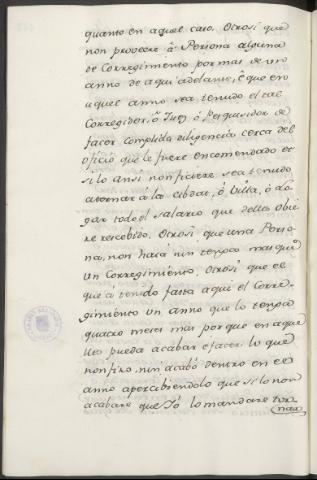 quanto en aquel caso. Otrosi que
non proveere à Persona alguna
de Corregimiento por mas de un
anno de aqui adelante, è que en
aquel anno sea tenudo el tal
Corregidor, ò Juez ò Pesquisidor de
facer complida diligencia cerca del
oficio que le fuere encomendado è
si lo ansi non ficiere sea tenudo
atornar á la cibdat, ò Villa, ò Lo-
gar todo el salario que dellos obie-
re rescebido. Otrosi que una Perso-
na, non haia nin tenga mas que
un Corregimiento. Otrosi que el
que à tenido fasta aqui el Corre-
gimiento un anno que lo tenga
quatro meses mas por que en aque-
lles pueda acabar è facer lo que
non fizo, nin acabó dentro en el
anno apercibiendolo que si lo non
acabare que Yó lo mandare tor-
nar